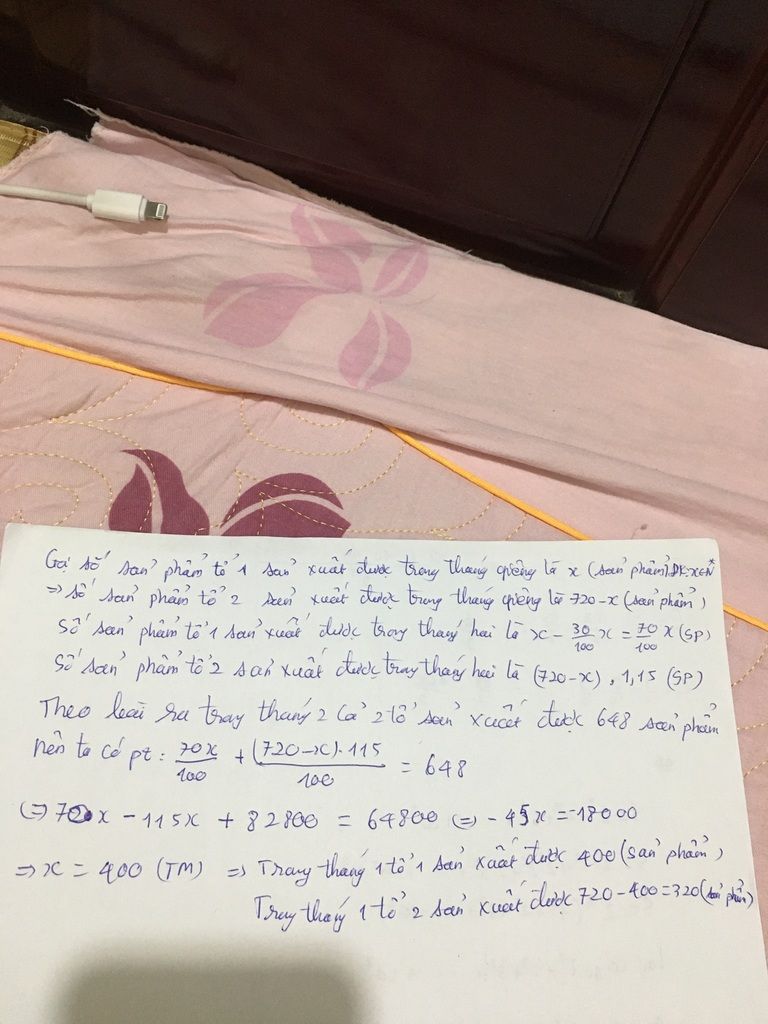 Gọi số sản phẩm tổ 1 sản xuất được trong tháng giêng là x (sản phẩm) ĐK: x∈N*
=> số sản phẩm tổ 2 sản xuất được trong tháng giêng là 720-x (sản phẩm)
Số sản phẩm tổ 1 sản xuất được trong tháng hai là x - 30/100 x = 70/100 x (SP)
Số sản phẩm tổ 2 sản xuất được trong tháng hai là (720-x) . 1,15 (SP)
Theo bài ra trong tháng 2 cả 2 tổ sản xuất được 648 sản phẩm
nên ta có pt: 70x/100 + (720-x).115/100 = 648
(=) 70x - 115x + 82800 = 64800 (=) -45x = -18000
=> x = 400 (TM) => Trong tháng 1 tổ 1 sản xuất được 400 (sản phẩm)
Trong tháng 1 tổ 2 sản xuất được 720-400=320 (sản phẩm)